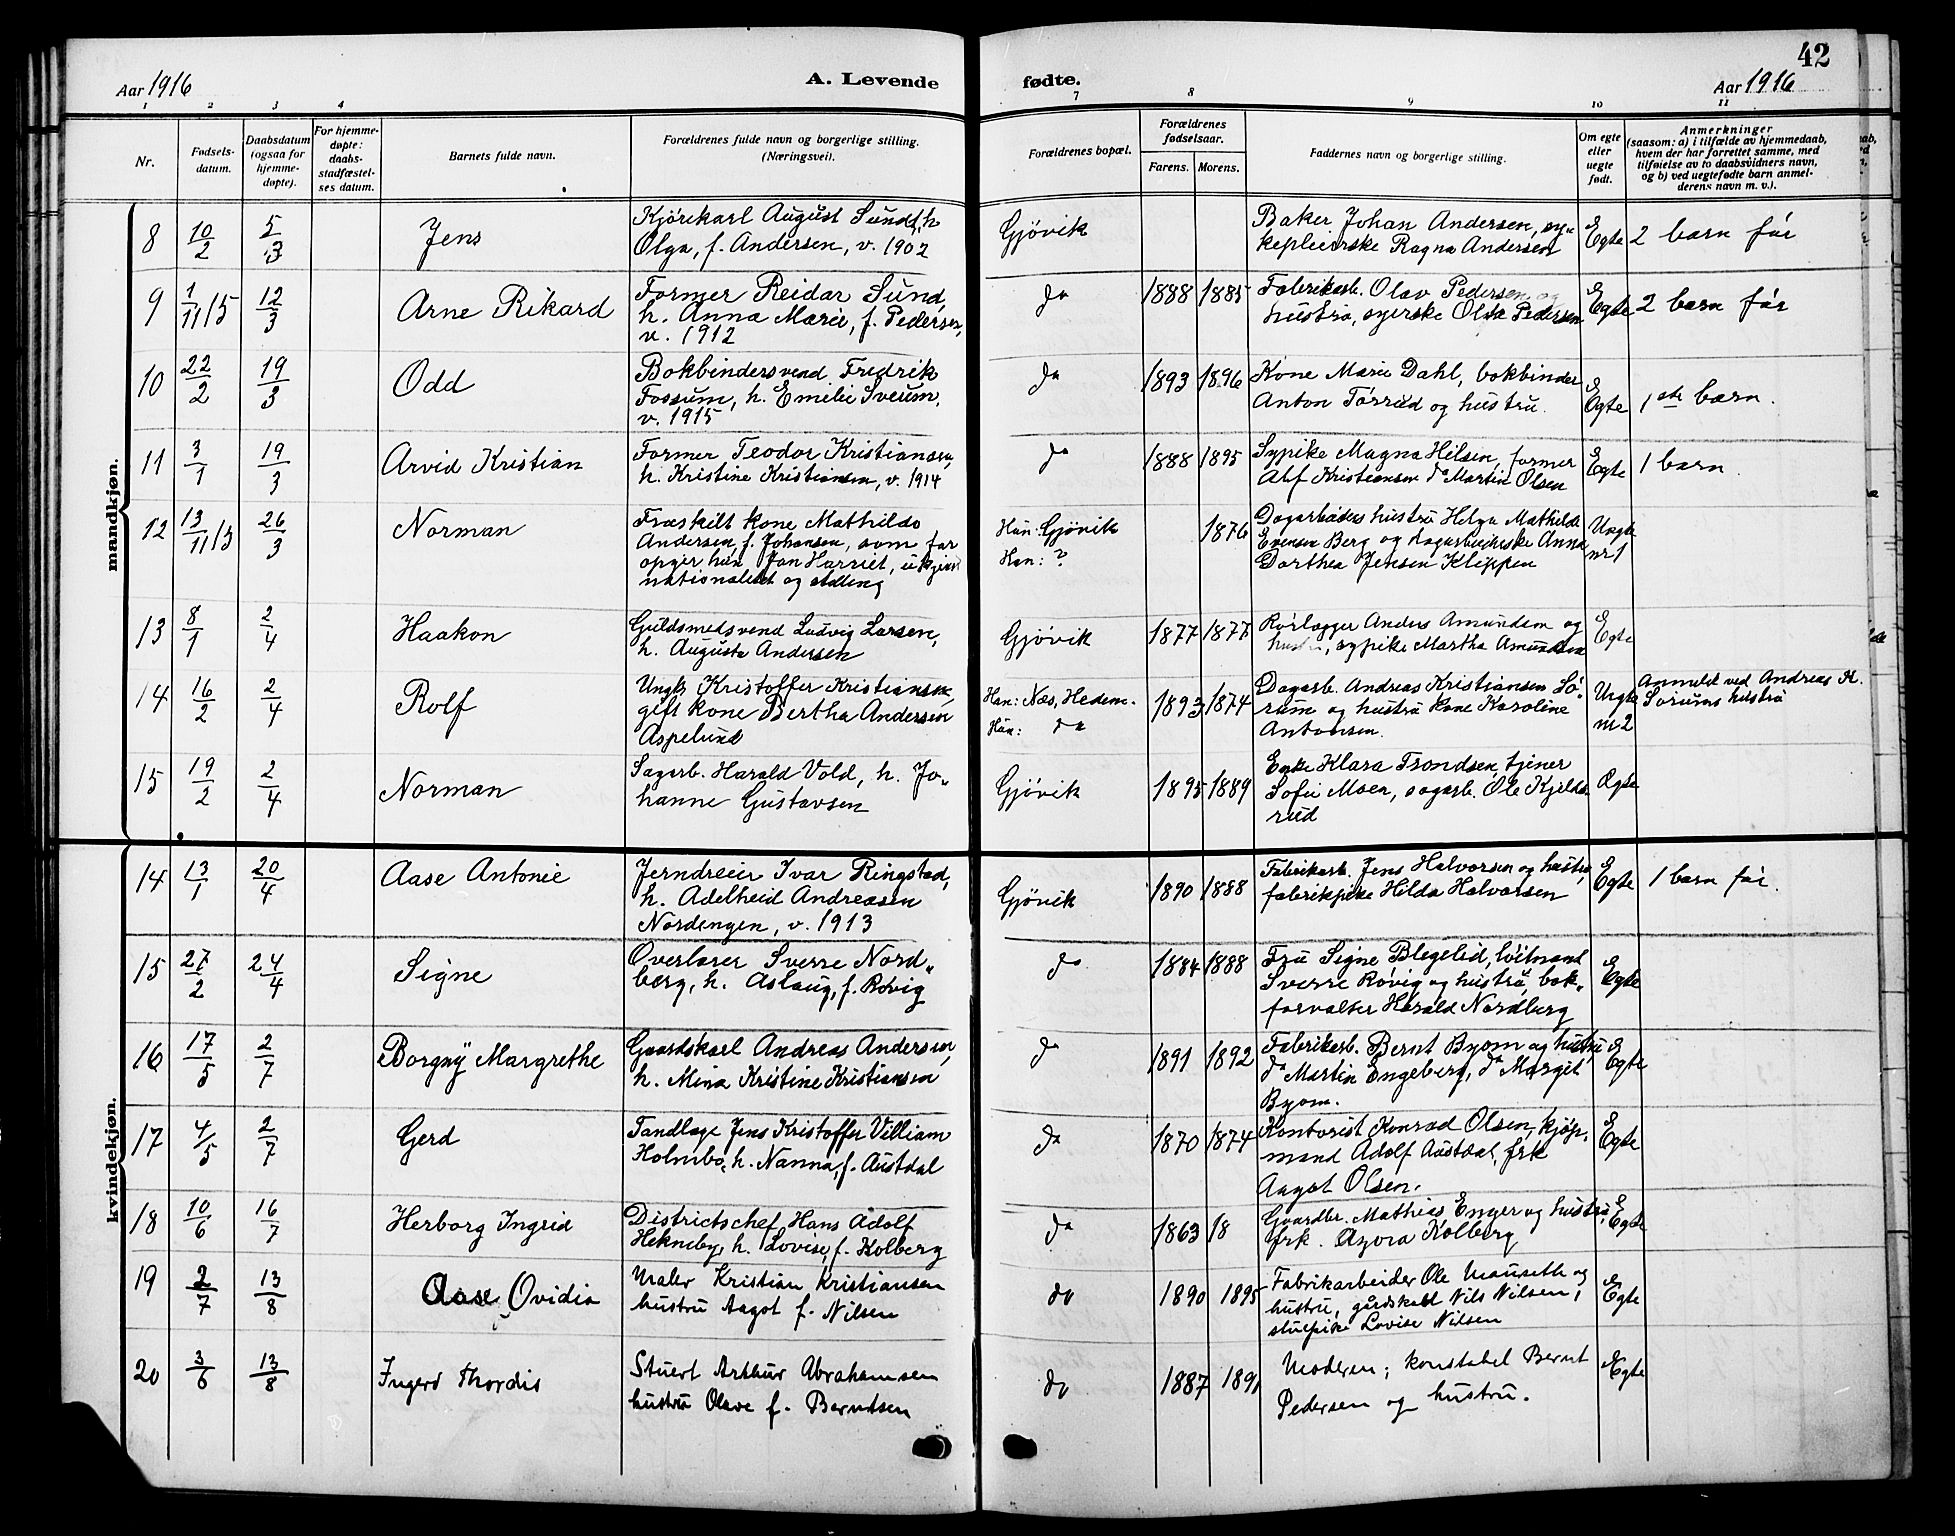 42
Aar 1916
A. Levende
fødte.
Aar 1916
1 2 3 4 7 8 9 10 11
Nr.
Fødsels-
datum.
Daabsdatum
(ogsaa for
hjemme-
døpte).
For hjemme-
døpte:
daabs-
stadfæstel-
ses datum.
Barnets fulde navn.
Forældrenes fulde navn og borgerlige stilling.
(Næringsvei).
Forældrenes bopæl.
Forældrenes
fødselsaar.
Farens. Morens.
Faddernes navn og borgerlige stilling.
Om egte
eller
uegte
født.
Anmerkninger
(saasom: a) i tilfælde av hjemmedaab,
hvem der har forrettet samme, med
tilføielse av to daabsvidners navn,
og b) ved uegtefødte barn anmel-
derens navn m. v.).
mandkjøn.
8 10/2 5/3 Jens
Kjørekarl August Sund, h.
Olga, f. Andersen, v. 1902
Gjøvik
Baker Johan Andersen, sy-
kepleierske Ragna Andersen
Egte 2 barn før
9 1/11 15 12/3 Arne Rikard
Former Reidar Sund,
h. Anna Marie, f. Pedersen,
v. 1912
do 1888 1885
Fabrikarb. Olav Pedersen og
hustru, syerske Olea Pedersen
Egte 2 barn før
10 22/2 19/3 Odd
Bokbindersvend Fredrik
Fossum, h. Emelie Sveum,
v. 1915
do 1893 1896
Kone Marie Dahl, bokbinder
Anton Tørrud og hustru.
Egte 1ste barn.
11 3/1 19/3 Arvid Kristian
Former Teodor Kristiansen,
h. Kristine Kristiansen, v. 1914
do 1888 1895
Sypike Magna Hilsen, former
Alf Kristiansen do Martin Olsen
Egte 1 barn
12 13/11 15 26/3 Norman
Fraskilt kone Mathilde
Andersen, f. Johansen, som far
opgir hun Jon Harriet, ukjent
nationalitet og stilling
Hun: Gjøvik
Han: ?
1876
Dagarbeiders hustru Helga Mathilde
Evensen Berg og dagarbeiderske Anna
Dorthea Jensen Klippen
Uegte
nr 1
13 8/1 2/4 Haakon
Guldsmedsvend Ludvig Larsen,
h. Augusta Andersen
Gjøvik 1877 1877
Rørlægger Anders Amundsen og
hustru, sypike Martha Amundsen
Egte
14 16/2 2/4 Rolf
Ungk. Kristoffer Kristiansen,
gift kone Bertha Andersen
Aspelund
Han: Næs, Hedem.
Hun: do
1893 1874
Dagarb. Andreas Kristiansen Sø-
rum og hustru Kone Karoline
Antonsen.
Uegte
nr 2
Anmeldt ved Andreas K.
Sørums hustru
15 19/2 2/4 Norman
Sagarb. Harald Vold, h. Jo-
hanne Gustavsen
Gjøvik 1895 1889
Enke Klara Trondsen, tjener
Sofie Moen, sagarb. Ole Kjelds-
rud
Egte
kvindekjøn.
14 13/1 20/4 Aase Antonie
Jerndreier Ivar Ringstad,
h. Adelheid Andreasen
Nordengen, v. 1913
Gjøvik 1890 1888
Fabrikarb. Jens Halvorsen og hustru,
fabrikpike Hilda Halvorsen
Egte 1 barn før.
15 27/2 24/4 Signe
Overlærer Sverre Nord-
berg, h. Aslaug, f. Røvig
do 1884 1888
Fru Signe Blegelid, løitnand
Sverre Røvig og hustru, bok-
forvalter Harald Nordberg
Egte
16 17/5 2/7 Borgny Margrethe
Gaardskarl Andreas Andersen,
h. Mina Kristine Kristiansen
do 1891 1892
Fabrikarb. Bernt Byom og hustru
do Martin Engeberg, do Margit
Byom.
Egte
17 4/5 2/7 Gerd
Tandlæge Jens Kristoffer Villiam
Holmbo, h. Nanna, f. Austdal
do 1870 1874
Kontorist Konrad Olsen, kjøp-
mand Adolf Austdal, frk
Aagot Olsen.
Egte
18 10/6 16/7 Herborg Ingrid
Districtschef Hans Adolf
Hekneby, h. Lovise, f. Kolberg
do 1863 18
Gaardbr. Mathias Enger og hustru,
frk. Azora Kolberg
Egte
19 2/7 13/8 Aase Ovidia
Maler Kristian Kristiansen
hustru Aagot f. Nilsen
do 1890 1895
Fabrikarbeider Ole Mauseth og
hustru, gårdskarl Nils Nilsen,
stuepike Lovise Nilsen
Egte
20 3/6 13/8 Ingerd Thordis
Stuert Arthur Abrahamsen
hustru Olave f. Berntsen
do 1887 1891
Moderen; konstabel Bernt
Pedersen og hustru.
Egte